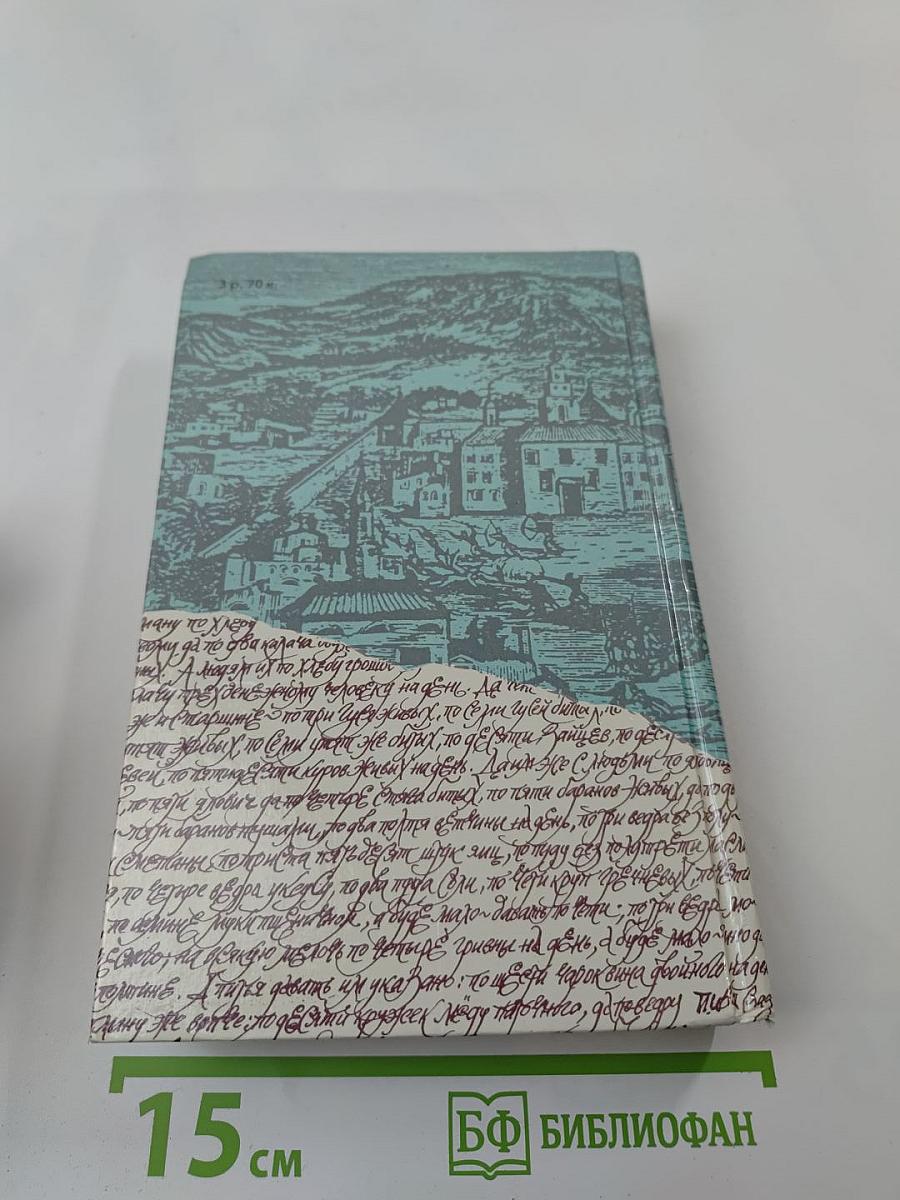 3 р. 70 к.
ману по хлебу
вому да по два калача
ных. А людям их по хлебу грошик
человеку на день. Да
же и старшине по три гуся живых, по семи гусей битых, по
утят живых, по семи утят же битых, по десяти зайцев, по
по пятидесяти куров живых на день. Да им же с людьми по
по пяти яловиц да по четыре битых, по пяти баранов живых, да по
пяти баранов по два полтя ветчины на день, по три ведра
сметаны, по триста пятьдесят штук яиц, по пуду без полутрети масла
по четыре ведра уксусу, по два пуда соли, по чети круп гречневых, по чети
муки пшеничной, а буде мало давать по чети, по три ведра мо-
на всякую мелочь по четыре гривны на день, а буде мало ино до
полтине. А питья давать им указано: по шести чарок вина двойного на день
ману же вятче, по десяти кружек мёду паточного, да по ведру пива
15 см
БФ БИБЛИОФАН